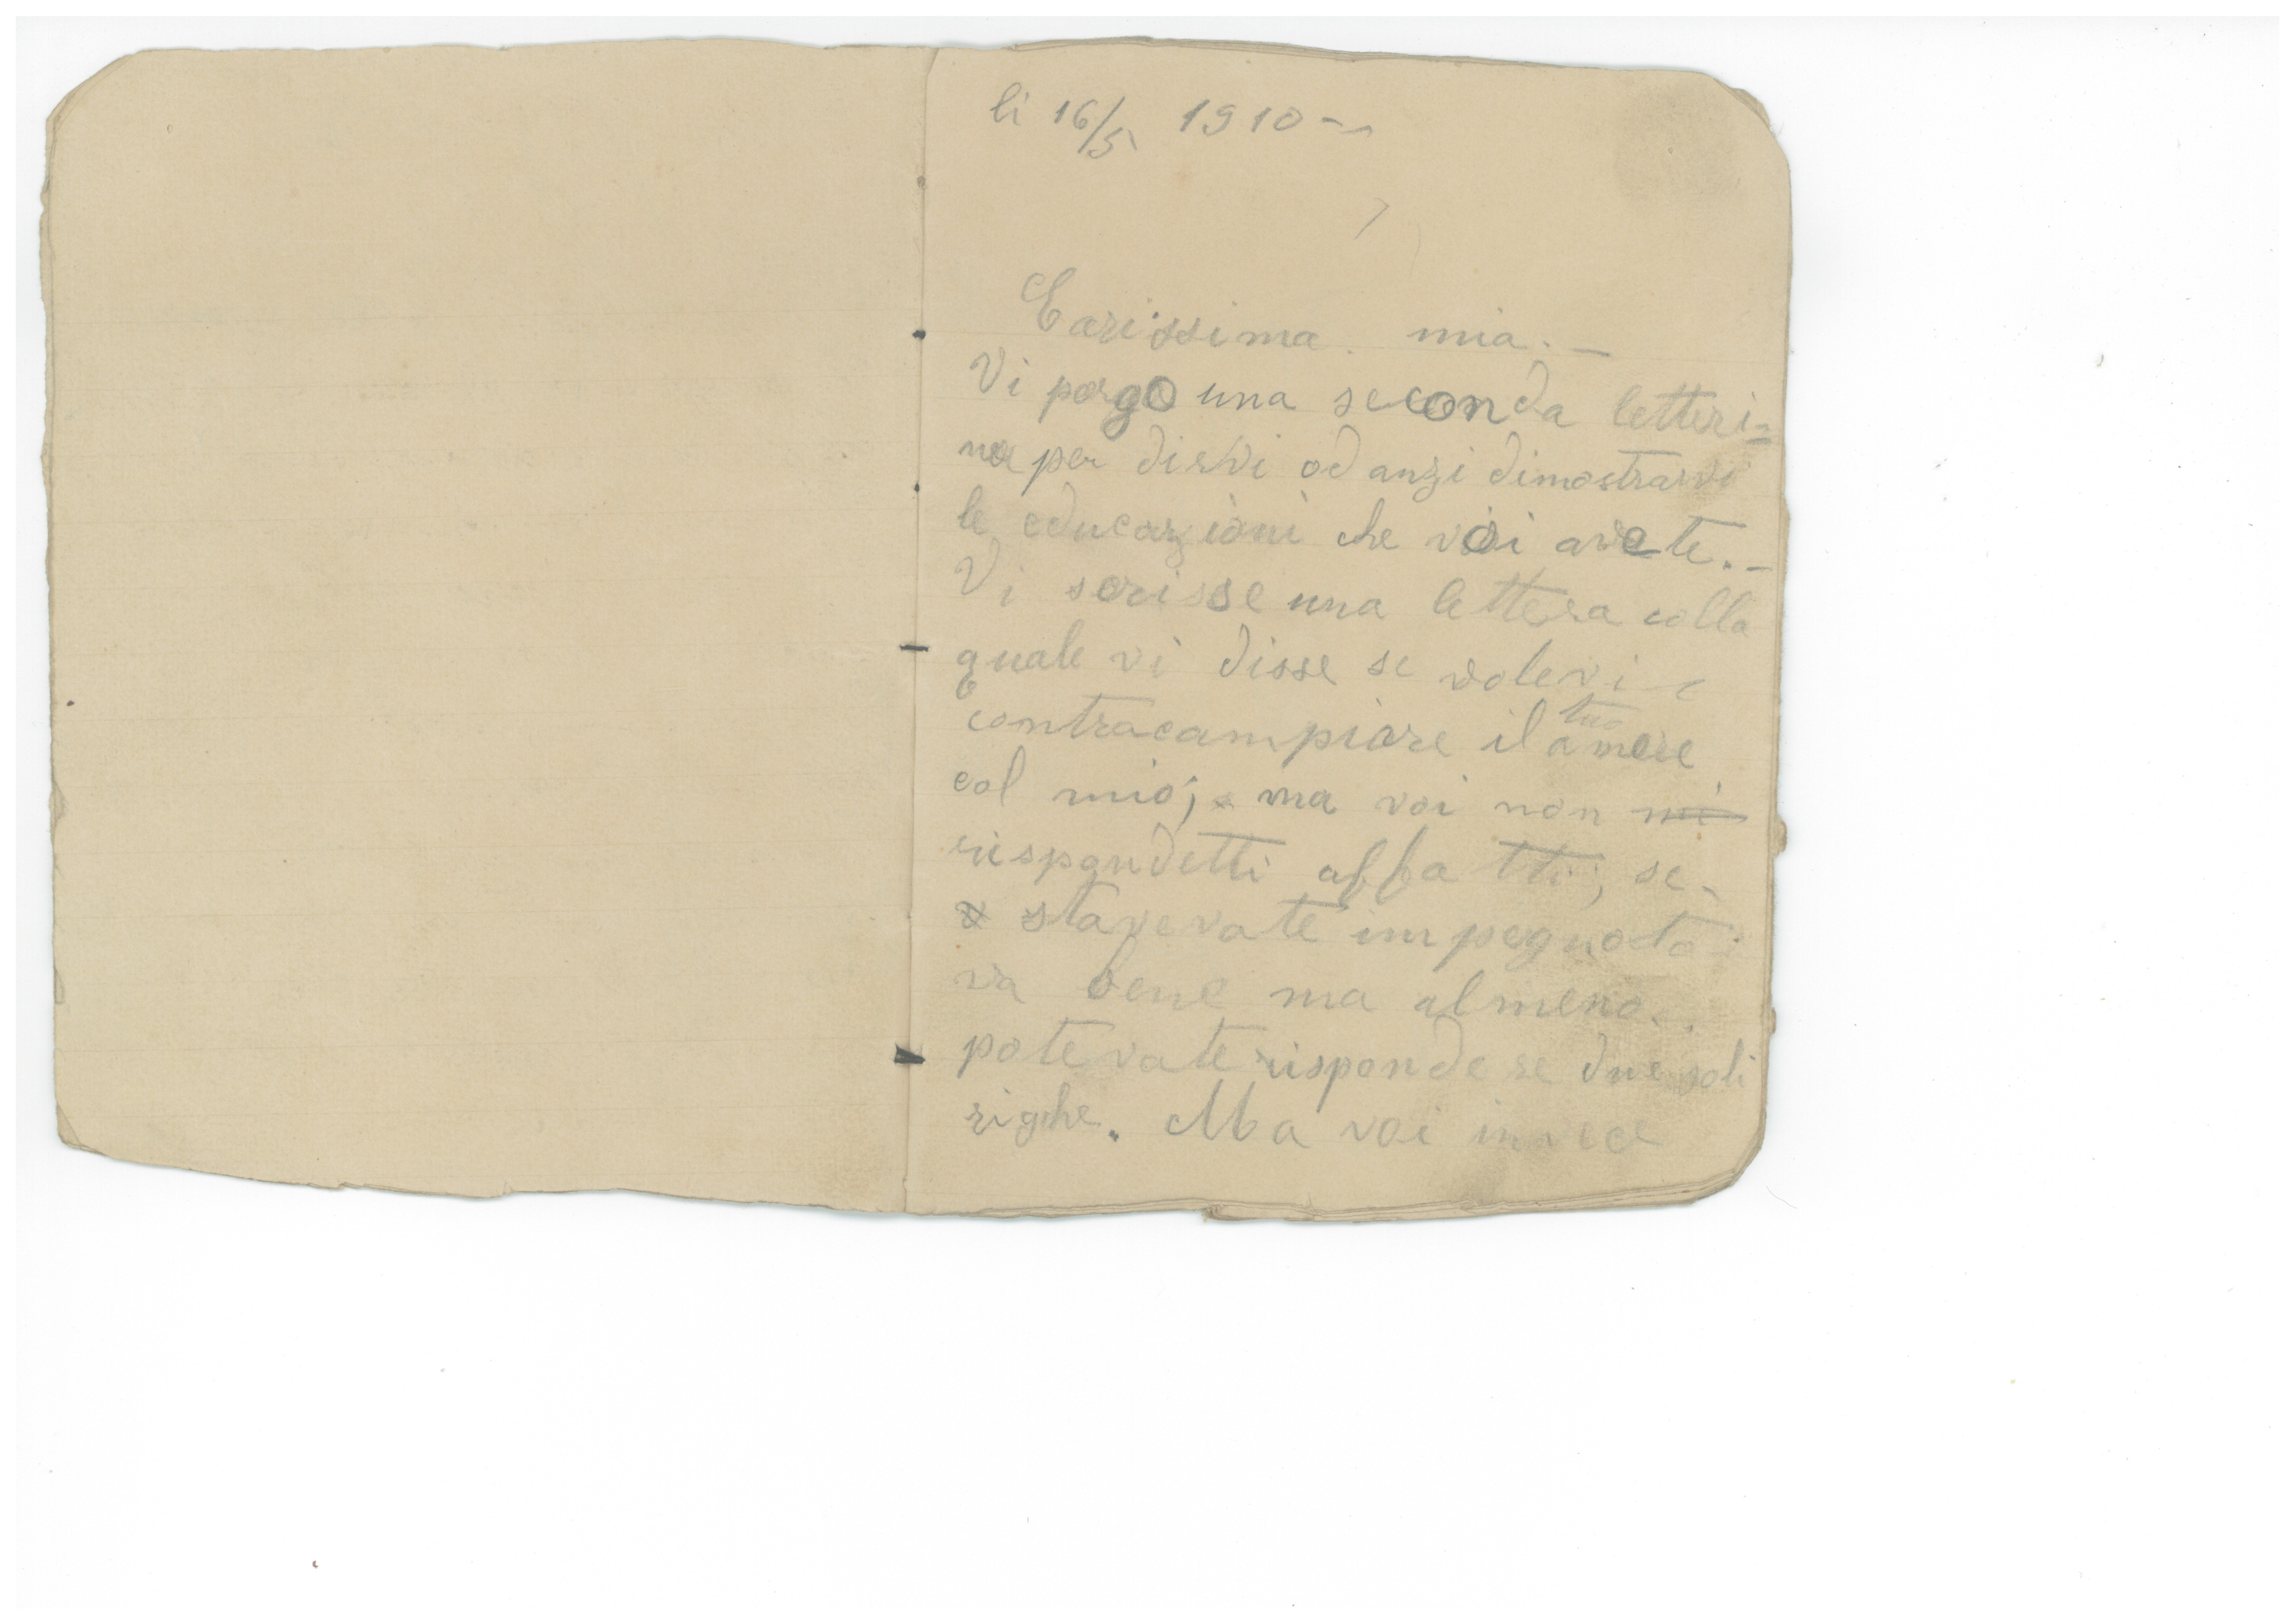 li 16/5 1910 -~
Carissima. mia. -
Vi porgo una seconda letteri=
na per dirvi od anzi dimostrarvi
le educazioni che voi avete. -
Vi scrisse una lettera colla
quale vi disse se volevi -
contracampiare il tuo amore
col mio; ma voi non mi
rispondetti affatti; se -
stavevate impegnata
va bene ma almeno..
potevate rispondere due soli
righe. Ma voi invece